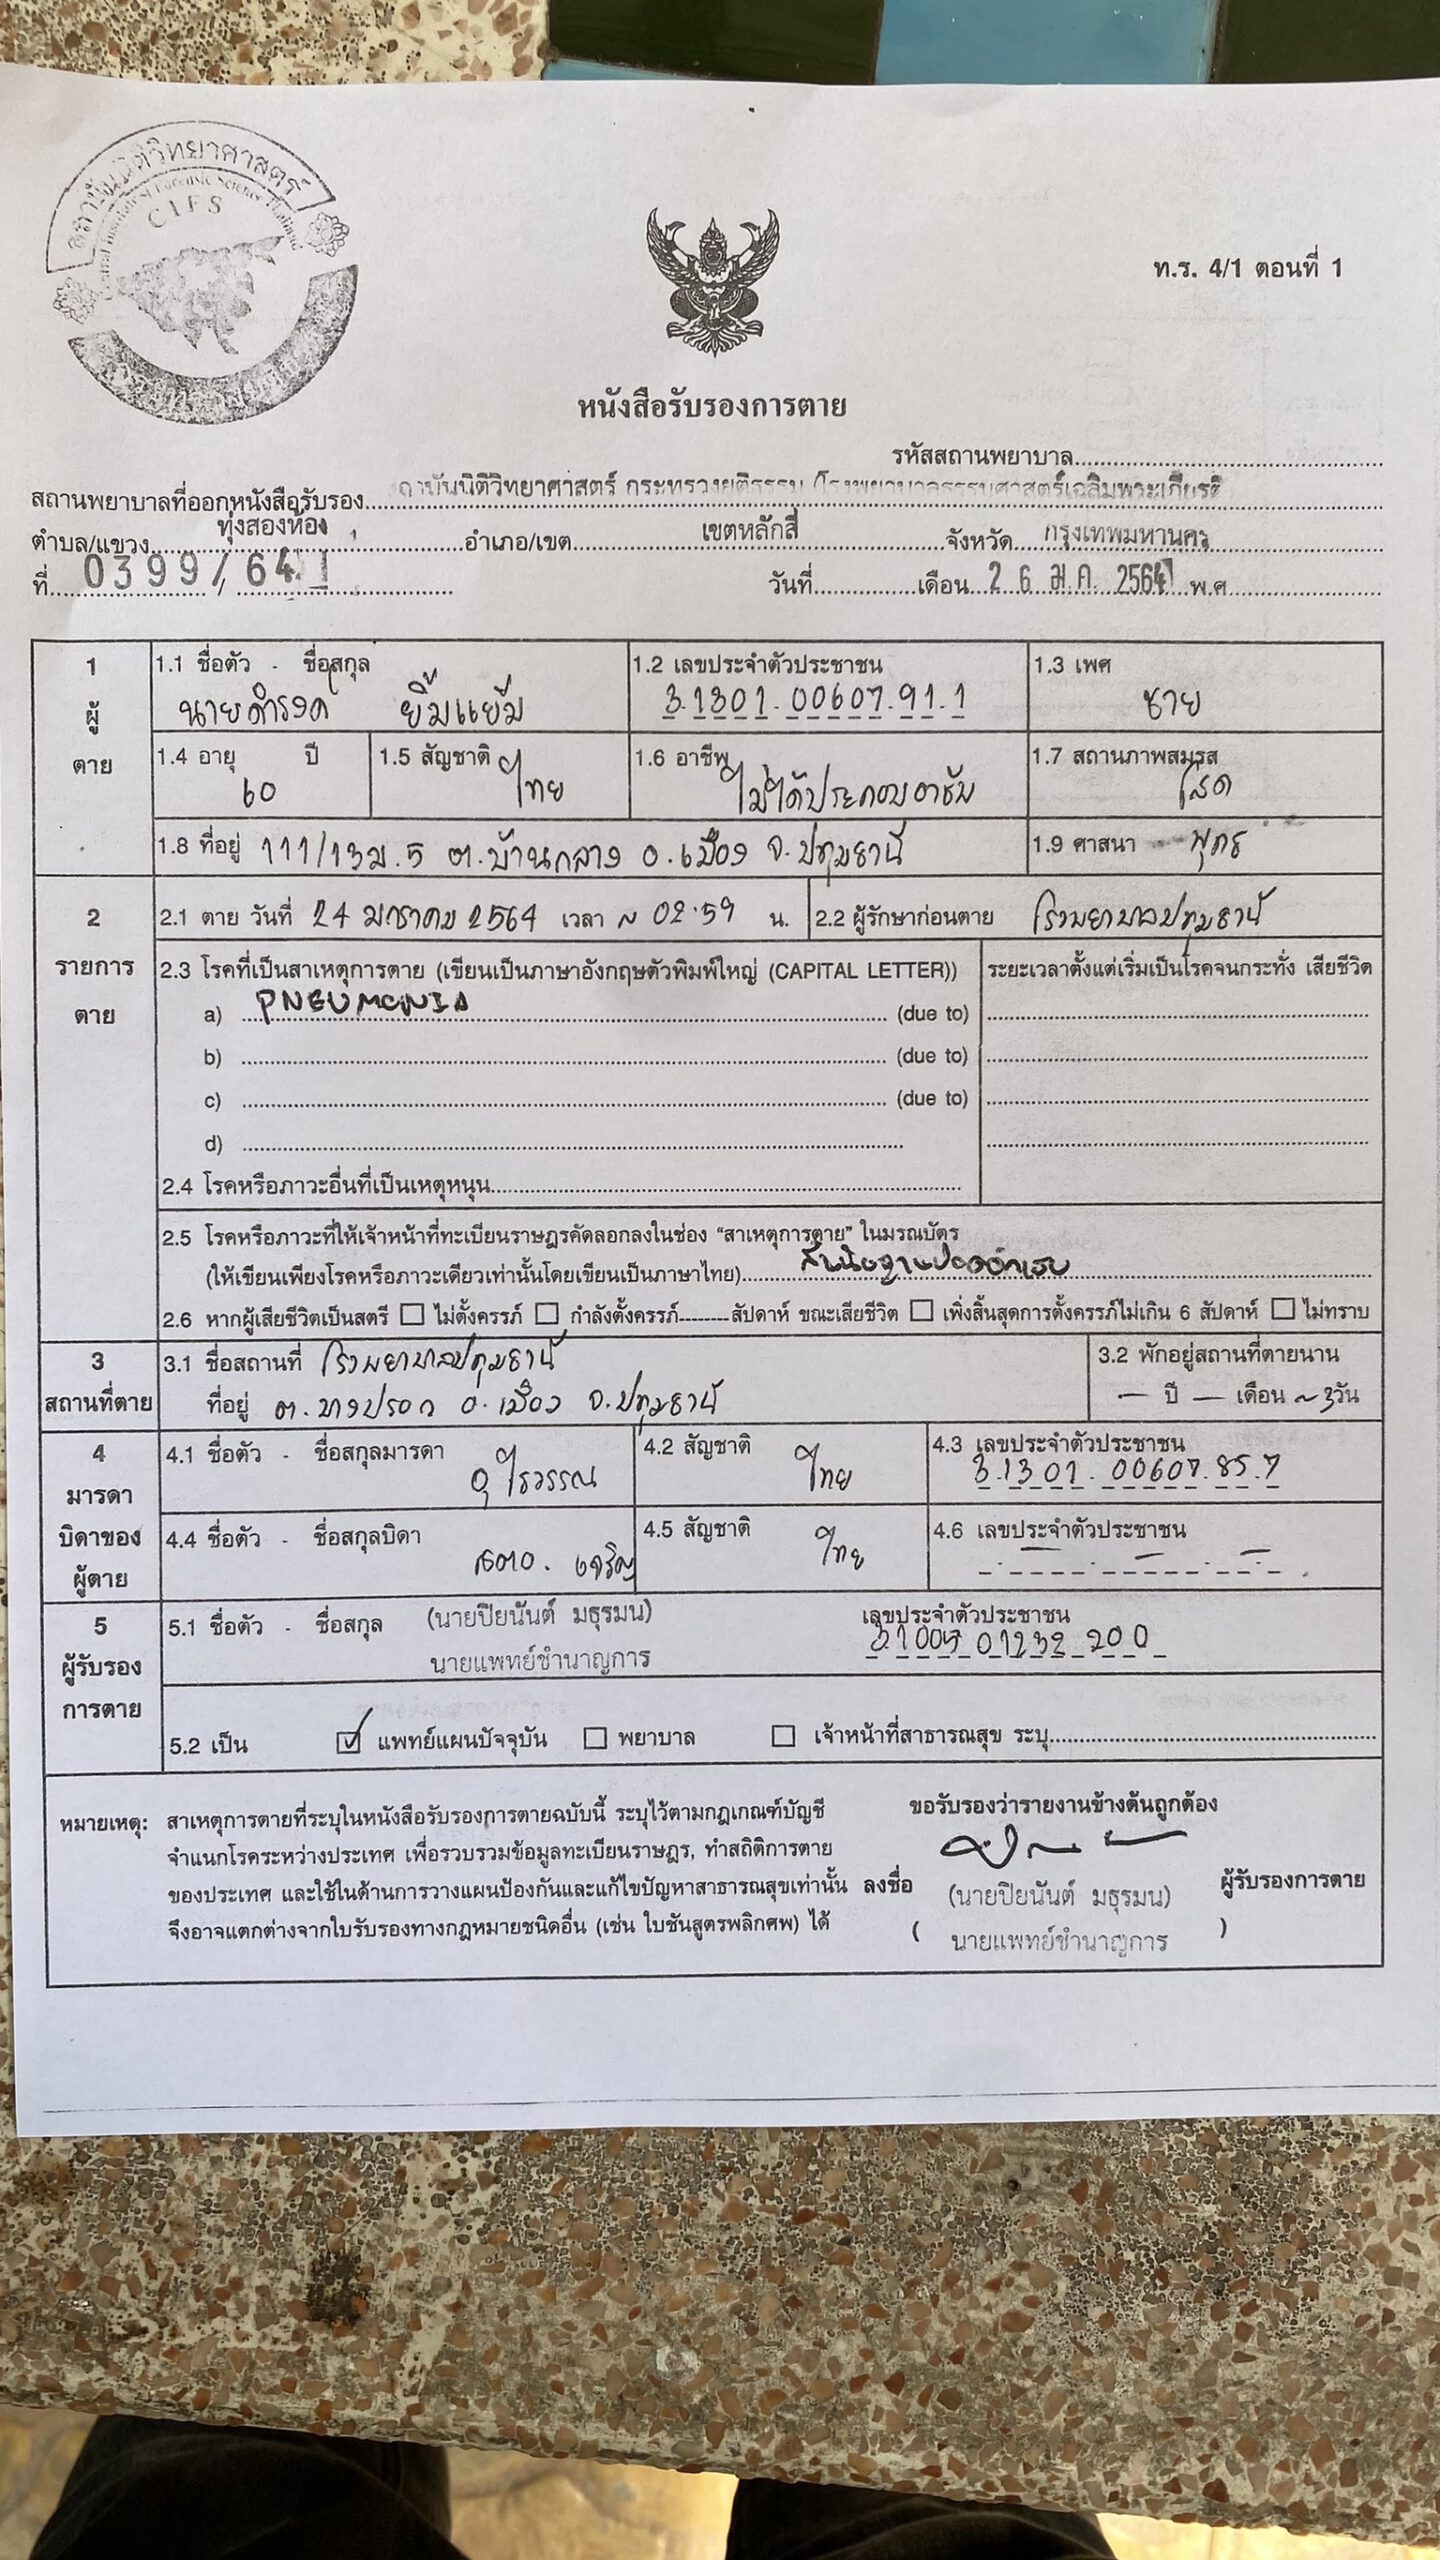 สถาบันนิติวิทยาศาสตร์
Central Institute of Forensic Science Thailand
CIFS
ท.ร. 4/1 ตอนที่ 1
หนังสือรับรองการตาย
รหัสสถานพยาบาล
สถานพยาบาลที่ออกหนังสือรับรอง สถาบันนิติวิทยาศาสตร์ กระทรวงยุติธรรม (โรงพยาบาลธรรมศาสตร์เฉลิมพระเกียรติ
ตำบล/แขวง ทุ่งสองห้อง อำเภอ/เขต เขตหลักสี่ จังหวัด กรุงเทพมหานคร
ที่ 0399/64 วันที่ เดือน 26 ม.ค. 2564 พ.ศ.
1 ผู้ตาย
1.1 ชื่อตัว - ชื่อสกุล นายดำรงค์ ยิ้มแย้ม
1.2 เลขประจำตัวประชาชน 3 1301 00607 91 1
1.3 เพศ ชาย
1.4 อายุ 60 ปี
1.5 สัญชาติ ไทย
1.6 อาชีพ ไม่ได้ประกอบอาชีพ
1.7 สถานภาพสมรส โสด
1.8 ที่อยู่ 111/13 ม.5 ต.บ้านกลาง อ.เมือง จ.ปทุมธานี
1.9 ศาสนา พุทธ
2 รายการตาย
2.1 ตาย วันที่ 24 มกราคม 2564 เวลา ~ 02.59 น.
2.2 ผู้รักษาก่อนตาย โรงพยาบาลปทุมธานี
2.3 โรคที่เป็นสาเหตุการตาย (เขียนเป็นภาษาอังกฤษตัวพิมพ์ใหญ่ (CAPITAL LETTER))
ระยะเวลาตั้งแต่เริ่มเป็นโรคจนกระทั่ง เสียชีวิต
a) PNEUMONIA (due to)
b) (due to)
c) (due to)
d)
2.4 โรคหรือภาวะอื่นที่เป็นเหตุหนุน
2.5 โรคหรือภาวะที่ให้เจ้าหน้าที่ทะเบียนราษฎรคัดลอกลงในช่อง “สาเหตุการตาย” ในมรณบัตร
(ให้เขียนเพียงโรคหรือภาวะเดียวเท่านั้นโดยเขียนเป็นภาษาไทย) สันนิษฐานปอดอักเสบ
2.6 หากผู้เสียชีวิตเป็นสตรี ไม่ตั้งครรภ์ กำลังตั้งครรภ์ สัปดาห์ ขณะเสียชีวิต เพิ่งสิ้นสุดการตั้งครรภ์ไม่เกิน 6 สัปดาห์ ไม่ทราบ
3 สถานที่ตาย
3.1 ชื่อสถานที่ โรงพยาบาลปทุมธานี
ที่อยู่ ต.บางปรอก อ.เมือง จ.ปทุมธานี
3.2 พักอยู่สถานที่ตายนาน
— ปี — เดือน ~ 3 วัน
4 มารดา บิดาของผู้ตาย
4.1 ชื่อตัว - ชื่อสกุลมารดา อุไรวรรณ
4.2 สัญชาติ ไทย
4.3 เลขประจำตัวประชาชน 3 1301 00607 85 7
4.4 ชื่อตัว - ชื่อสกุลบิดา เจริญ
4.5 สัญชาติ ไทย
4.6 เลขประจำตัวประชาชน
5 ผู้รับรองการตาย
5.1 ชื่อตัว - ชื่อสกุล (นายปิยนันต์ มธุรมน)
นายแพทย์ชำนาญการ
เลขประจำตัวประชาชน 3 1005 01232 20 0
5.2 เป็น แพทย์แผนปัจจุบัน พยาบาล เจ้าหน้าที่สาธารณสุข ระบุ
หมายเหตุ: สาเหตุการตายที่ระบุในหนังสือรับรองการตายฉบับนี้ ระบุไว้ตามกฎเกณฑ์บัญชี
จำแนกโรคระหว่างประเทศ เพื่อรวบรวมข้อมูลทะเบียนราษฎร, ทำสถิติการตาย
ของประเทศ และใช้ในด้านการวางแผนป้องกันและแก้ไขปัญหาสาธารณสุขเท่านั้น
จึงอาจแตกต่างจากใบรับรองทางกฎหมายชนิดอื่น (เช่น ใบชันสูตรพลิกศพ) ได้
ขอรับรองว่ารายงานข้างต้นถูกต้อง
ลงชื่อ ผู้รับรองการตาย
(นายปิยนันต์ มธุรมน)
( นายแพทย์ชำนาญการ )